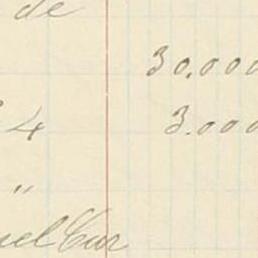 de
30.000
4 3.000
"
uel Cur